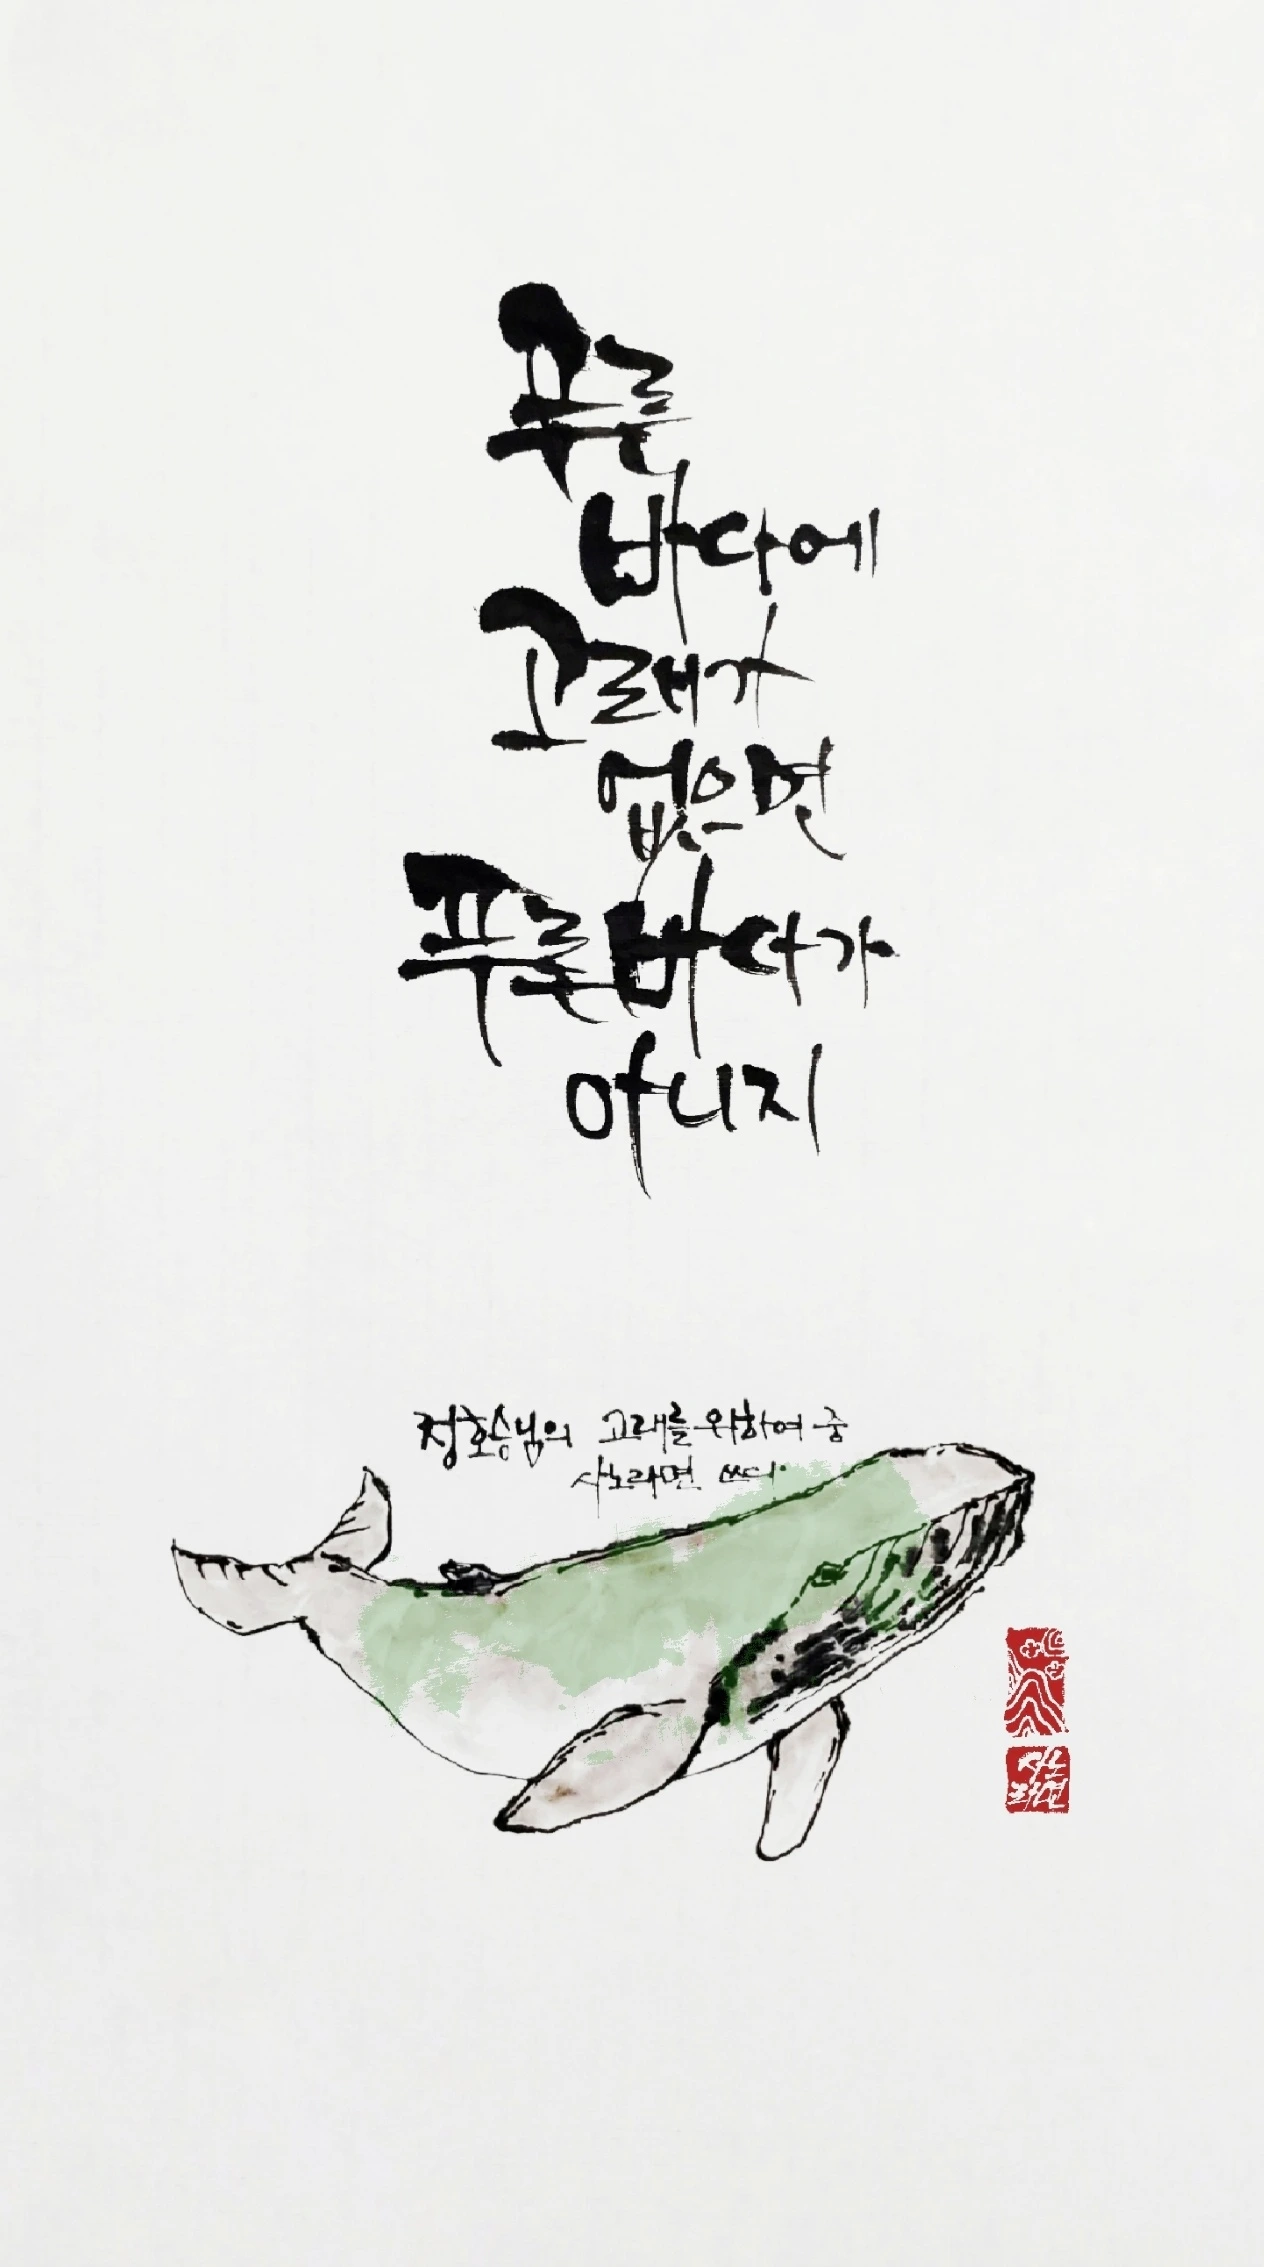 푸른
바다에
고래가
없으면
푸른바다가
아니지
정호승님의 고래를위하여 중
사노라면 쓰다.
사노
라면